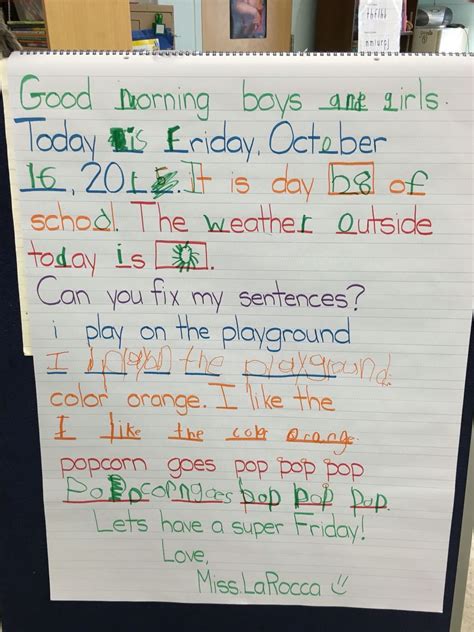 Good morning boys and girls.
Today is Friday, October
16, 2015. It is day b8 of
school. The weather outside
today is .
Can you fix my sentences?
i play on the playground
I play on the playground.
color orange. I like the
I like the color orange.
popcorn goes pop pop pop
Popcorn goes pop pop pop.
Lets have a super Friday!
Love,
Miss. LaRocca